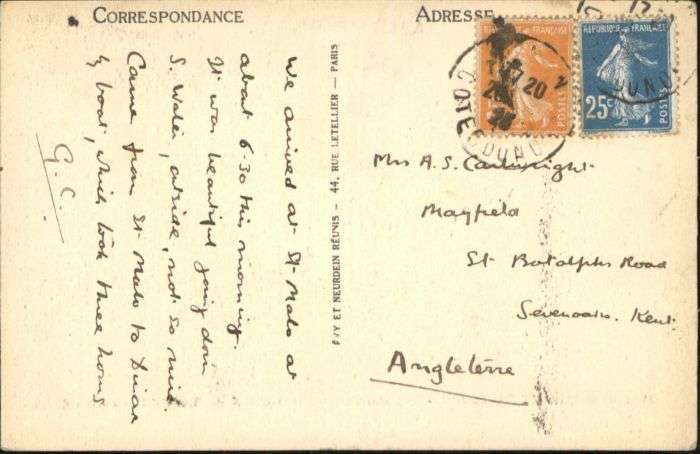 CORRESPONDANCE
ADRESSE
We arrived at St-Malo at
about 6-30 this morning.
It was beautiful going down
S. Water, outside, not so nice.
Came from St Malo to Dinan
by boat, which took three hours
G.C.
LÉVY ET NEURDEIN RÉUNIS - 44, RUE LETELLIER — PARIS
RÉPUBLIQUE FRANÇAISE
POSTES
RÉPUBLIQUE FRANÇAISE
25c
POSTES
17 20
COTES DU NORD
Mrs A.S. Cartwright
Mayfield
St Botolphs Road
Sevenoaks. Kent.
Angleterre